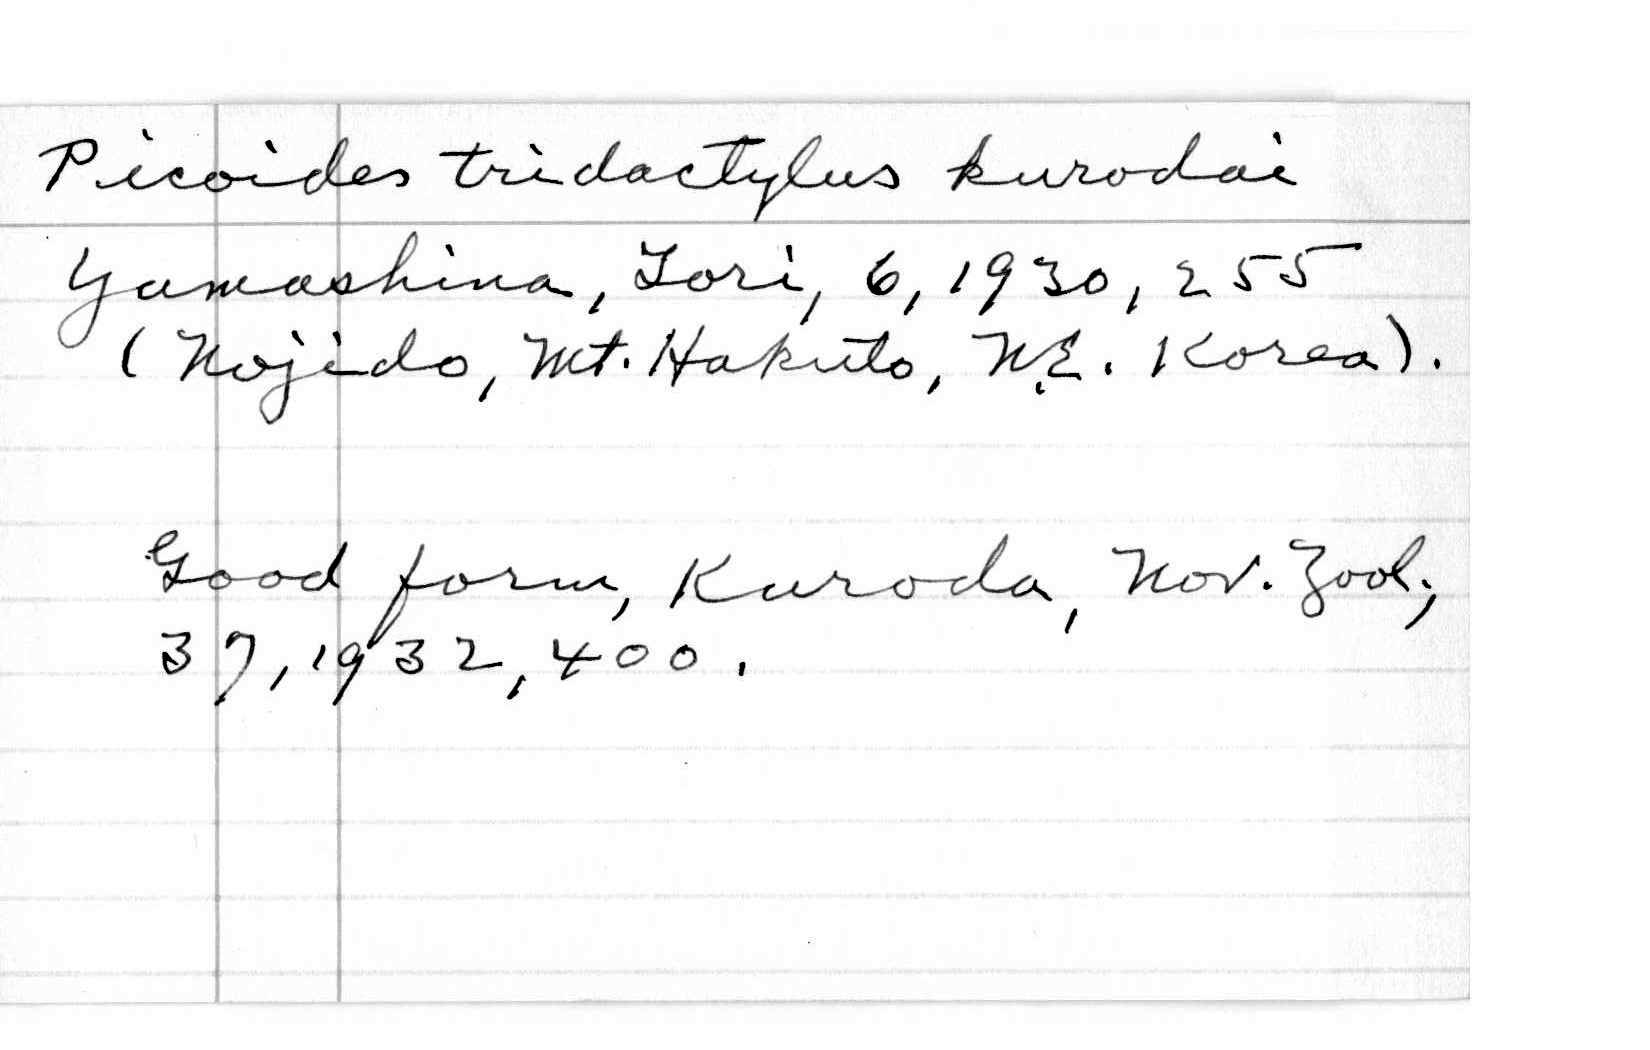 Picoides tridactylus kurodai
Yamashina, Tori, 6, 1930, 255
(Nojido, Mt. Hakuto, N.E. Korea).
Good form, Kuroda, Nov. Zool.,
37, 1932, 400.